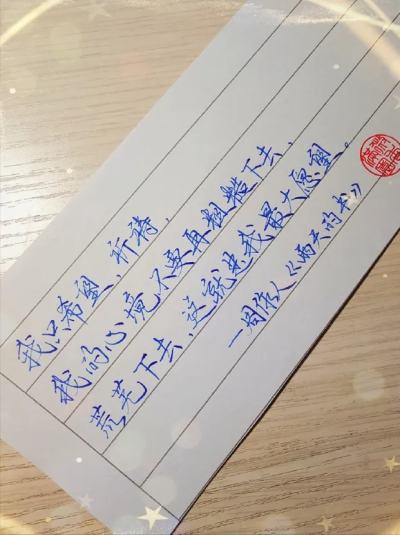 我只希望，祈祷，
我的心境不要再粗糙下去，
荒芜下去，这就是我最大愿望。
—周作人《雨天的书》